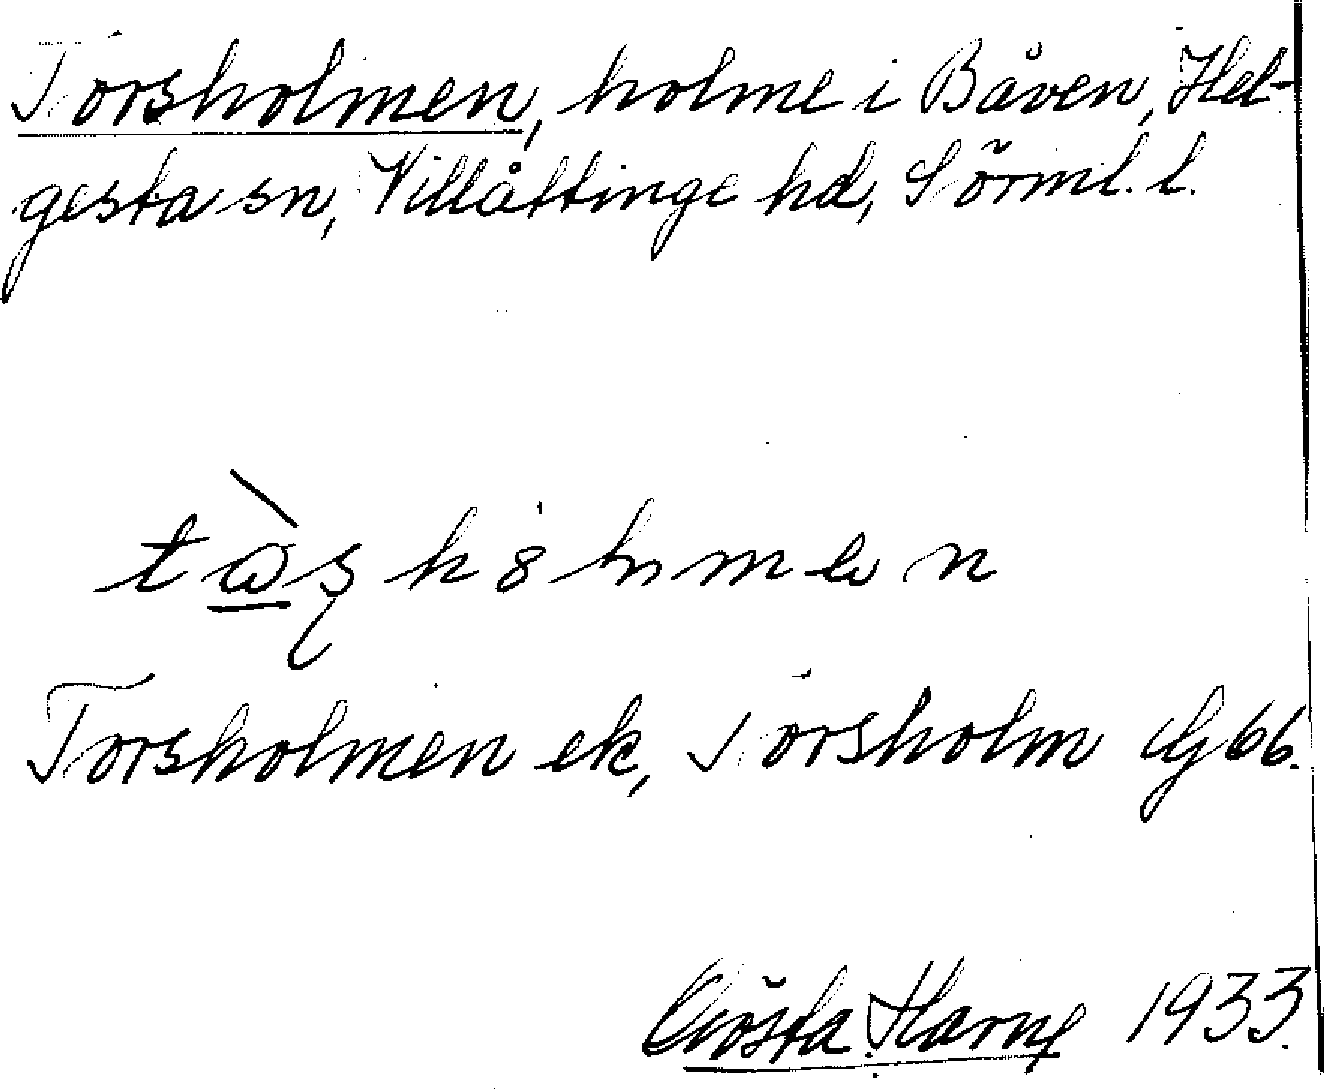 Torsholmen, holme i Båven, Hel-
gesta sn, Villåttinge hd, Sörml. l.
Torsholmen ek, Torsholm Gg 66.
Gösta Harne 1933.